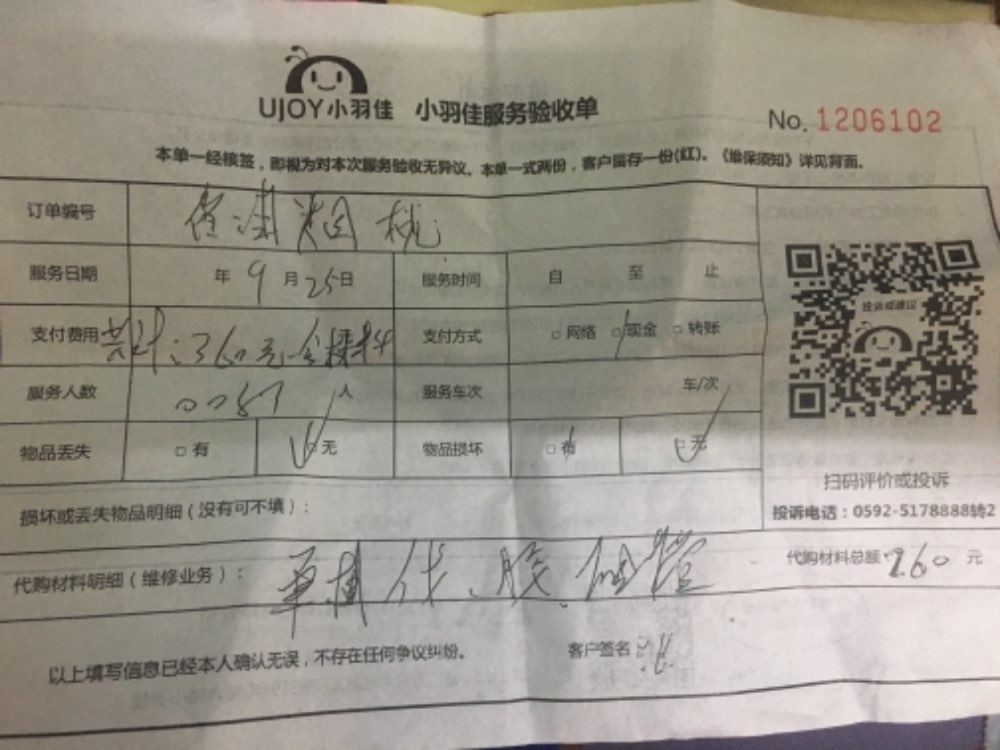 UJOY小羽佳 小羽佳服务验收单
No. 1206102
本单一经核签，即视为对本次服务验收无异议。本单一式两份，客户留存一份(红)。《维保须知》详见背面。
订单编号 烟机
服务日期 年9月25日 服务时间 自 至 止
支付费用 共计：360元含材料 支付方式 □网络 □现金 □转账
服务人数 人 服务车次 车/次
物品丢失 □有 □无 物品损坏 □有 □无
投诉或建议
扫码评价或投诉
损坏或丢失物品明细（没有可不填）：
投诉电话：0592-5178888转2
代购材料明细（维修业务）： 胶
代购材料总额：260元
以上填写信息已经本人确认无误，不存在任何争议纠纷。
客户签名：